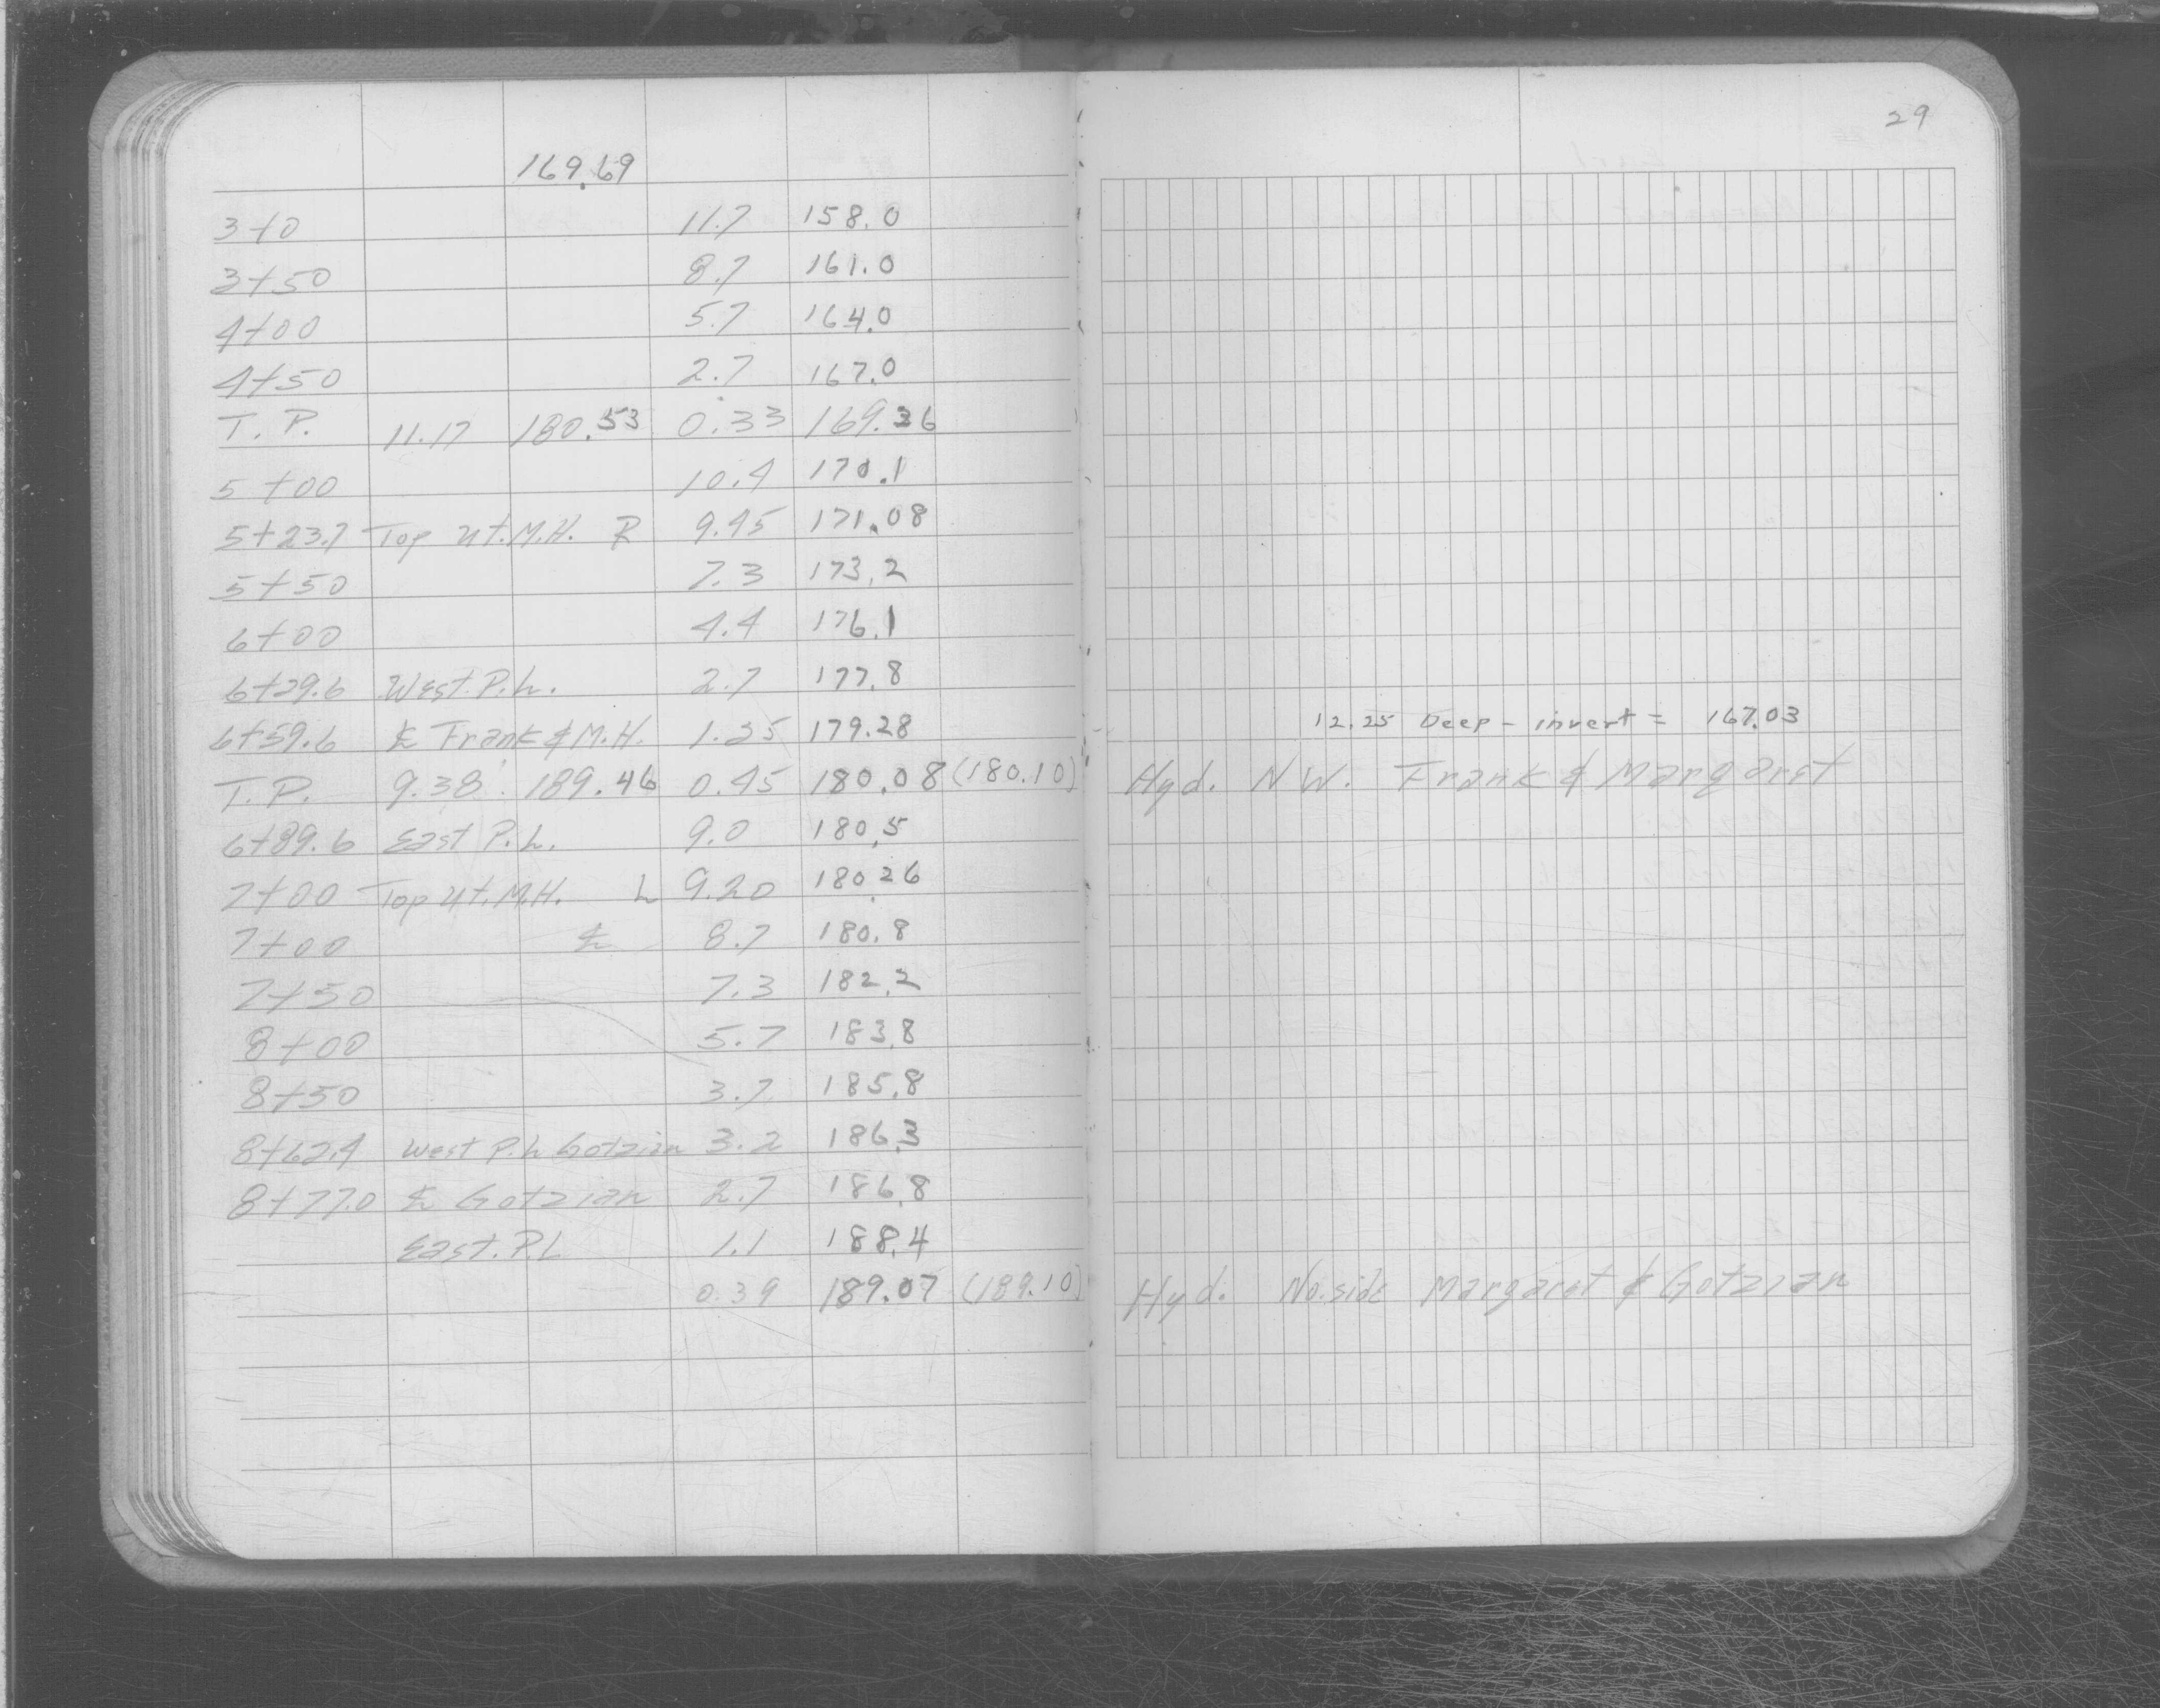 29
169.69
3+0 11.7 158.0
3+50 8.7 161.0
4+00 5.7 164.0
4+50 2.7 167.0
T. P. 11.17 180.53 0.33 169.36
5+00 10.4 170.1
5+23.7 Top Ut. M.H. R 9.45 171.08
5+50 7.3 173.2
6+00 4.4 176.1
6+29.6 West. P.L. 2.7 177.8
6+59.6 ℄ Frank & M.H. 1.25 179.28 12.25 Deep - invert = 167.03
T.P. 9.38 189.46 0.45 180.08 (180.10) Hyd. N W. Frank & Margaret
6+89.6 East P.L. 9.0 180.5
7+00 Top Ut. M.H. L 9.20 180.26
7+00 ℄ 8.7 180.8
7+50 7.3 182.2
8+00 5.7 183.8
8+50 3.7 185.8
8+62.4 West P.L Gotzian 3.2 186.3
8+77.0 ℄ Gotzian 2.7 186.8
East. P.L 1.1 188.4
0.39 189.07 (189.10) Hyd. No. side Margaret & Gotzian